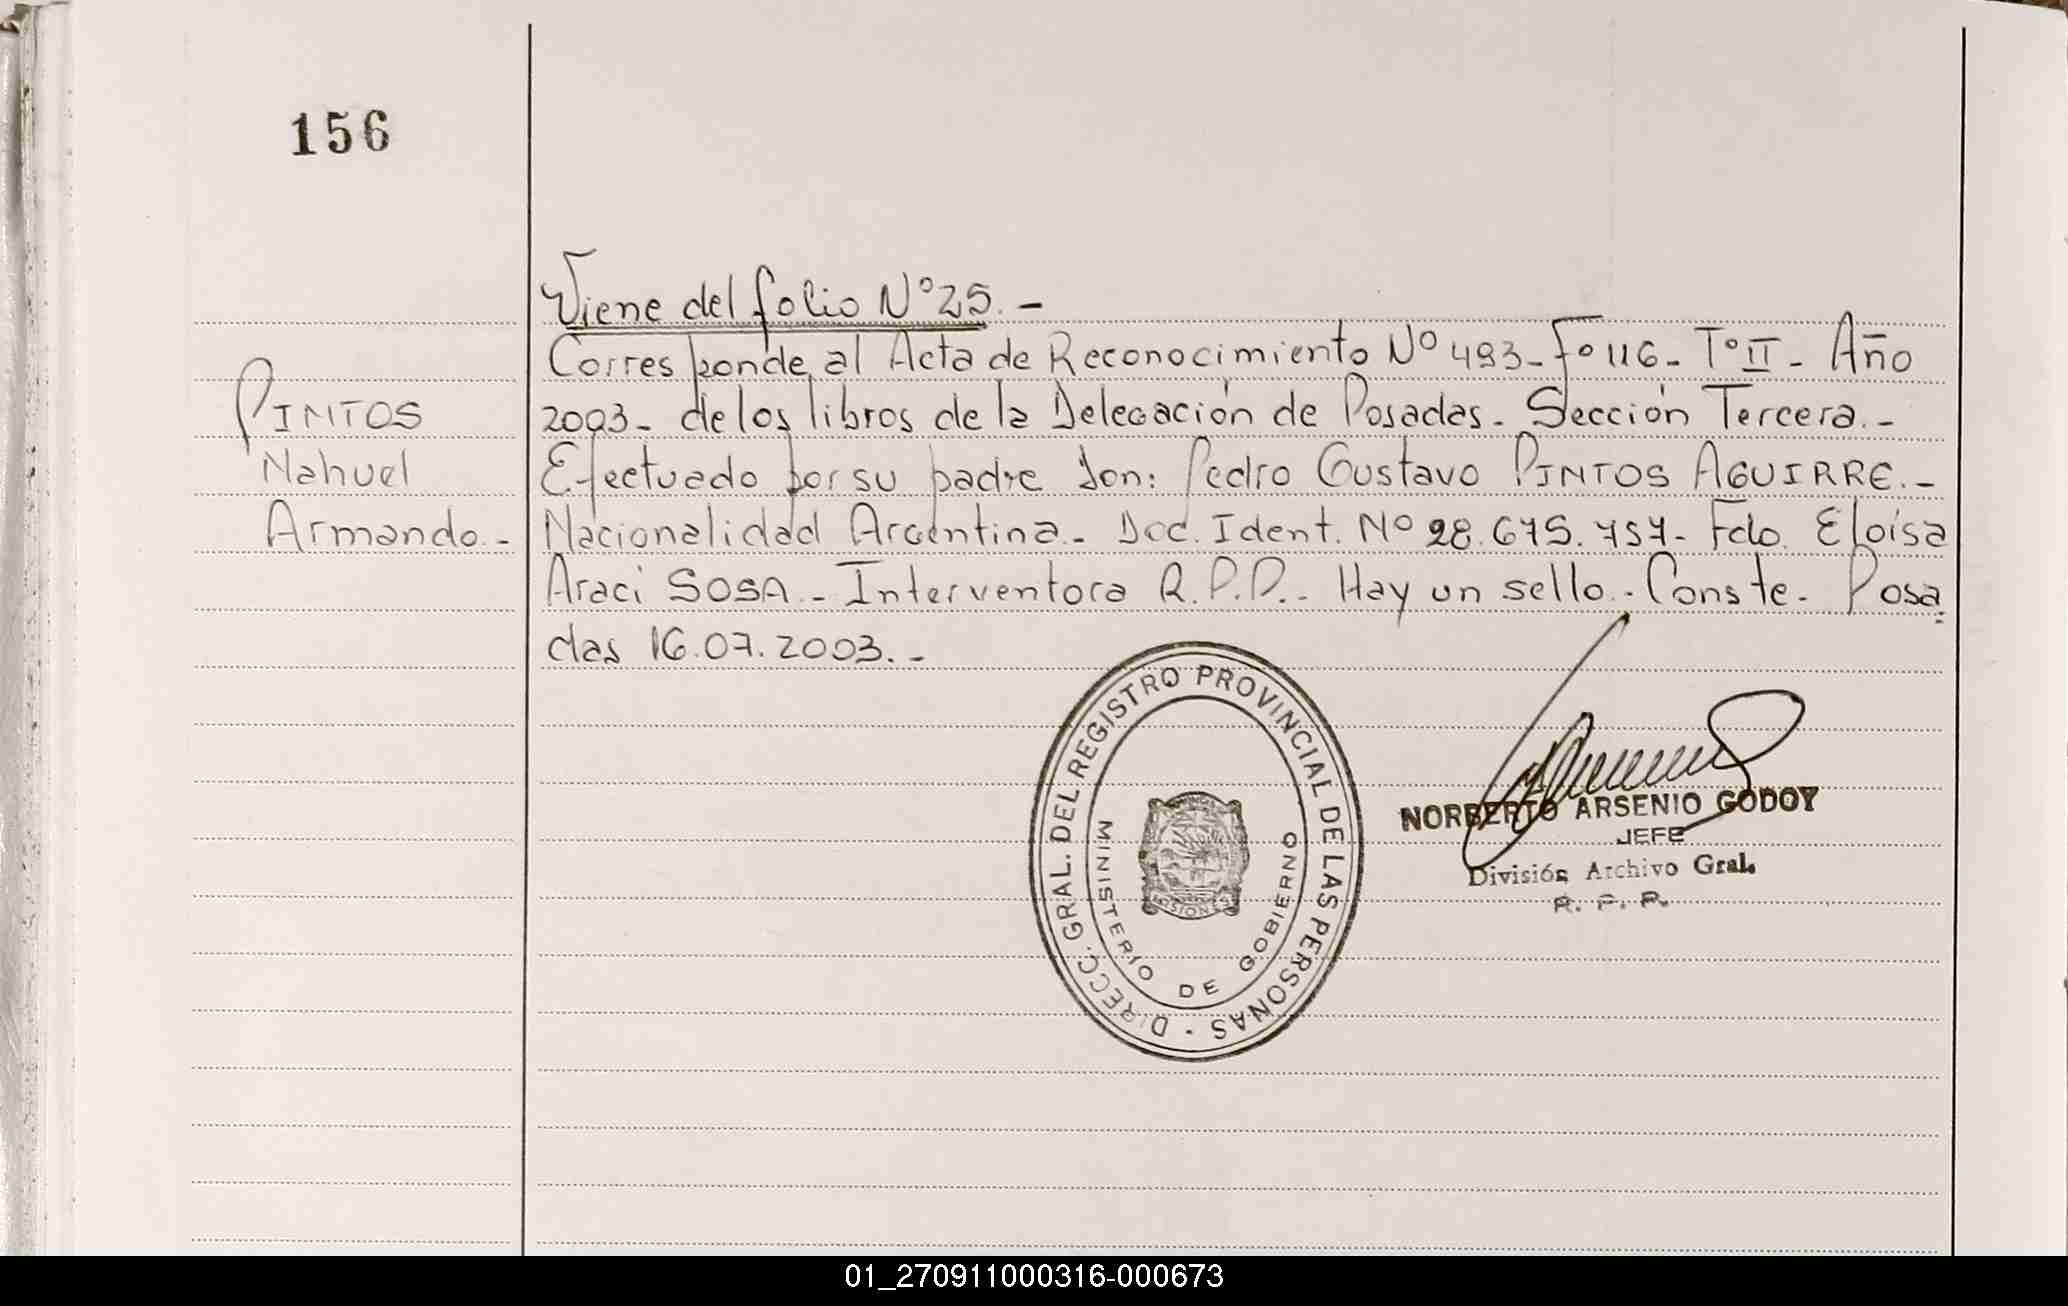 156
Viene del folio Nº 25.-
Corresponde al Acta de Reconocimiento Nº 493- Fº 116- Tº II- Año
2003- de los libros de la Delegación de Posadas- Sección Tercera.-
Efectuado por su padre Don: Pedro Gustavo PINTOS AGUIRRE.-
Nacionalidad Argentina- Doc. Ident. Nº 28.675.757- Fdo. Eloísa
Araci SOSA.- Interventora R.P.P.- Hay un sello.- Conste- Posa
das 16.07.2003.-
PINTOS
Nahuel
Armando.-
DIRECC. GRAL. DEL REGISTRO PROVINCIAL DE LAS PERSONAS -
MINISTERIO DE GOBIERNO
MISIONES
NORBERTO ARSENIO GODOY
JEFE
División Archivo Gral.
R. P. P.
01_270911000316-000673